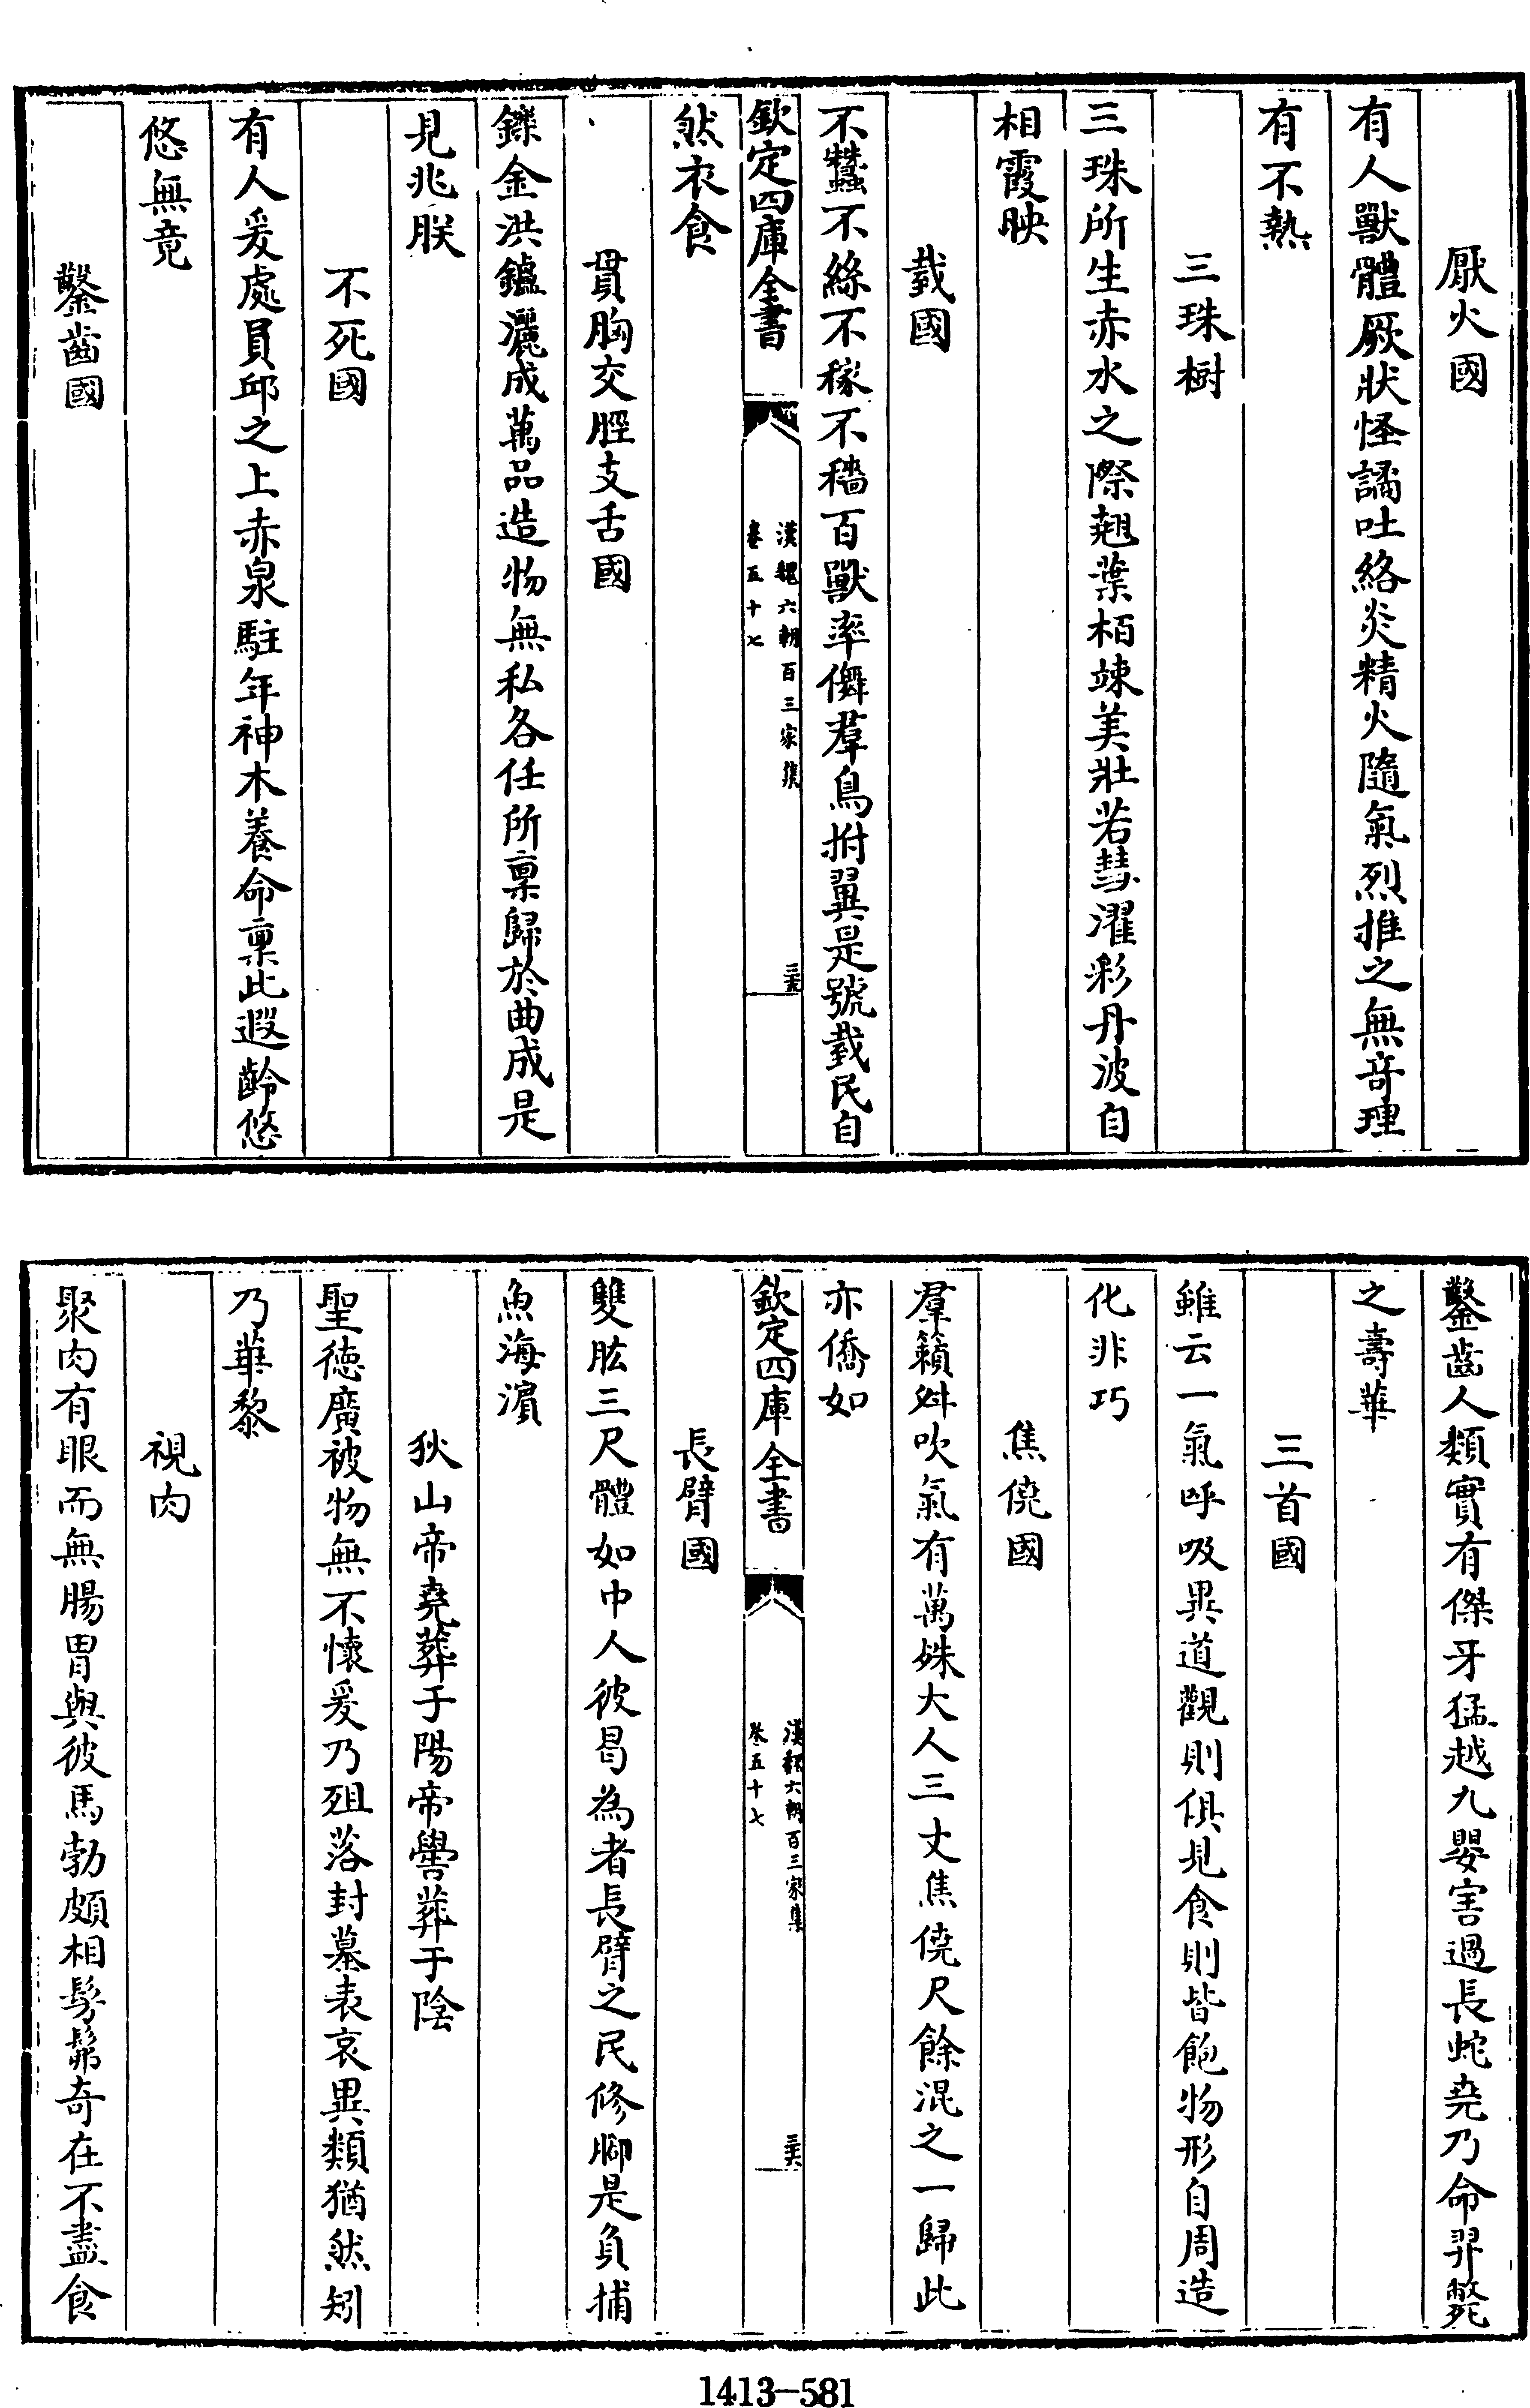 厭火國
有人獸體厥狀怪譎吐納炎精火隨氣烈推之無奇理
有不熱
三珠樹
三珠所生赤水之際翹葉栢竦美壯若彗濯彩丹波自
相霞映
臷國
不蠶不絲不稼不穡百獸率儛羣鳥拊翼是號臷民自
欽定四庫全書
漢魏六朝百三家集
卷五十七
三五
然衣食
貫胸交脛支舌國
鑠金洪鑪灑成萬品造物無私各任所稟歸於曲成是
見兆朕
不死國
有人爰處員邱之上赤泉駐年神木養命稟此遐齡悠
悠無竟
鑿齒國
鑿齒人類實有傑牙猛越九嬰害過長蛇堯乃命羿斃
之壽華
三首國
雖云一氣呼吸異道觀則俱見食則皆飽物形自周造
化非巧
焦僥國
羣籟舛吹氣有萬姝大人三丈焦僥尺餘混之一歸此
亦僑如
欽定四庫全書
漢魏六朝百三家集
卷五十七
三六
長臂國
雙肱三尺體如中人彼曷為者長臂之民修脚是負捕
魚海濵
狄山帝堯葬于陽帝嚳葬于陰
聖徳廣被物無不懷爰乃殂落封墓表哀異類猶然矧
乃華黎
視肉
聚肉有眼而無腸胃與彼馬勃頗相髣髴奇在不盡食
1413-581